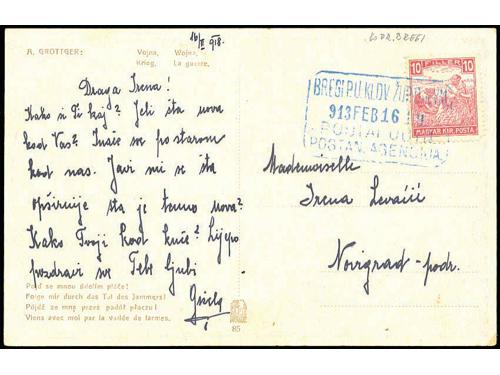 16/II 918.
KOPR. BREGI
A. GROTTGER:
Vojna, Wojna,
Krieg, La guerre.
Draga Irena!
Kako si Ti kaj? Jeli šta nova
kod Vas? Inače sve po starom
kod nas. Javi mi se šta
opširnije šta je tamo nova?
Kako Tvoji kod kuće? Lijepo
pozdravi sve Tebe ljubi
Gizela
Pojď se mnou údolím pláče!
Folge mir durch das Tal des Jammers!
Pójdź ze mną przez padół płaczu!
Viens avec moi par la vallée de larmes.
85
BREGI PU KLOV. ŽUP.
913 FEB 16
POŠTAN. AGENCIJA
10 FILLÉR 10
MAGYAR KIR. POSTA
Mademoiselle
Irena Levačić
Novigrad-podr.